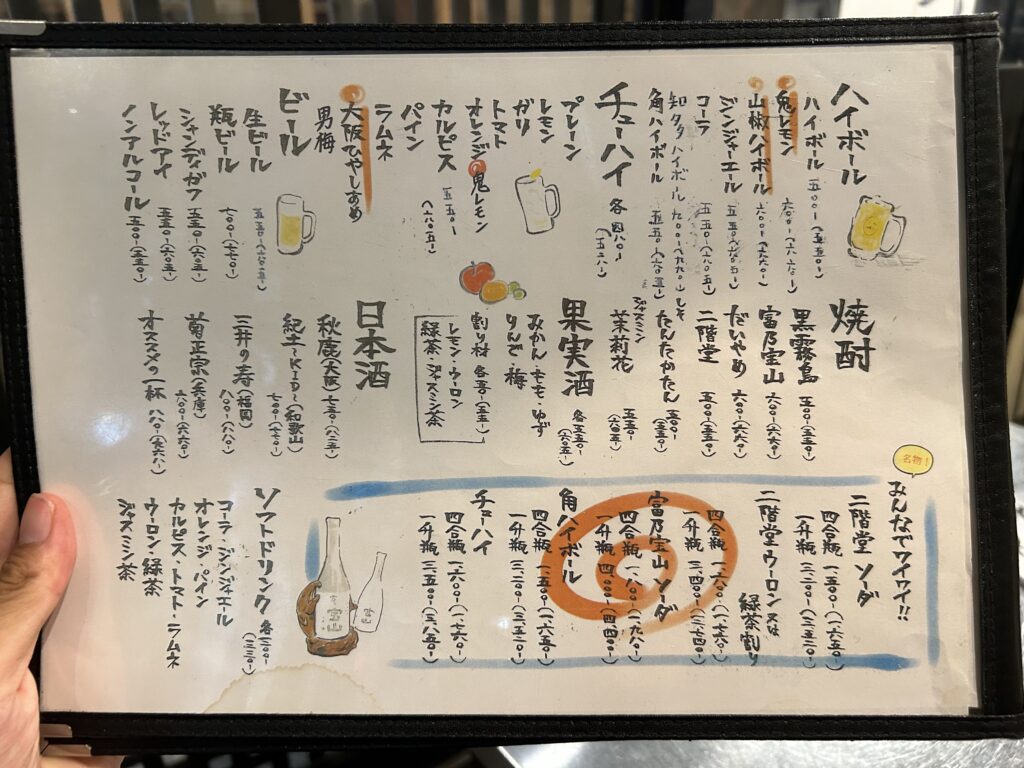 ハイボール
ハイボール 五〇〇-(五五〇-)
鬼レモン 六〇〇-(六六〇-)
山椒ハイボール 六〇〇-(六六〇-)
ジンジャーエール 五五〇-(六〇五-)
コーラ 五五〇-(六〇五-)
ハイボール 九〇〇-(九九〇-)
角ハイボール 五五〇-(六〇五-)
チューハイ 各四八〇-(五二八-)
プレーン
レモン
ガリ
トマト
オレンジ 鬼レモン
カルピス 五五〇-(六〇五-)
パイン
ラムネ
大阪ひやしあめ
男梅
ビール
生ビール 五五〇-(六〇五-)
瓶ビール 七〇〇-(七七〇-)
シャンディガフ 五五〇-(六〇五-)
レッドアイ 五五〇-(六〇五-)
ノンアルコール 五〇〇-(五五〇-)
焼酎
黒霧島 五〇〇-(五五〇-)
富乃宝山 六〇〇-(六六〇-)
だいやめ 六〇〇-(六六〇-)
二階堂 五〇〇-(五五〇-)
しそ
たんたかたん 五〇〇-(五五〇-)
ジャスミン
茉莉花 五五〇-(六〇五-)
果実酒 各五五〇-(六〇五-)
みかん・もも・ゆず
りんご・梅
割り材 各五〇-(五五-)
レモン・ウーロン
緑茶・ジャスミン茶
日本酒
秋鹿(大阪) 七五〇-(八二五-)
紀土〜KID〜(和歌山) 七〇〇-(七七〇-)
三井の寿(福岡) 八〇〇-(八八〇-)
菊正宗(兵庫) 六〇〇-(六六〇-)
オススメの一杯 八八〇-(九六八-)
名物!
みんなでワイワイ!!
二階堂 ソーダ
四合瓶 一、五〇〇-(一、六五〇-)
一升瓶 三、二〇〇-(三、五二〇-)
二階堂ウーロン又は
緑茶割り
四合瓶 一、六〇〇-(一、七六〇-)
一升瓶 三、四〇〇-(三、七四〇-)
富乃宝山 ソーダ
四合瓶 一、八〇〇-(一、九八〇-)
一升瓶 四、〇〇〇-(四、四〇〇-)
角ハイボール
四合瓶 一、五〇〇-(一、六五〇-)
一升瓶 三、二〇〇-(三、五二〇-)
チューハイ
四合瓶 一、六〇〇-(一、七六〇-)
一升瓶 三、五〇〇-(三、八五〇-)
宝山
ソフトドリンク 各三〇〇-(三三〇-)
コーラ・ジンジャエール
オレンジ・パイン
カルピス・トマト・ラムネ
ウーロン・緑茶
ジャスミン茶